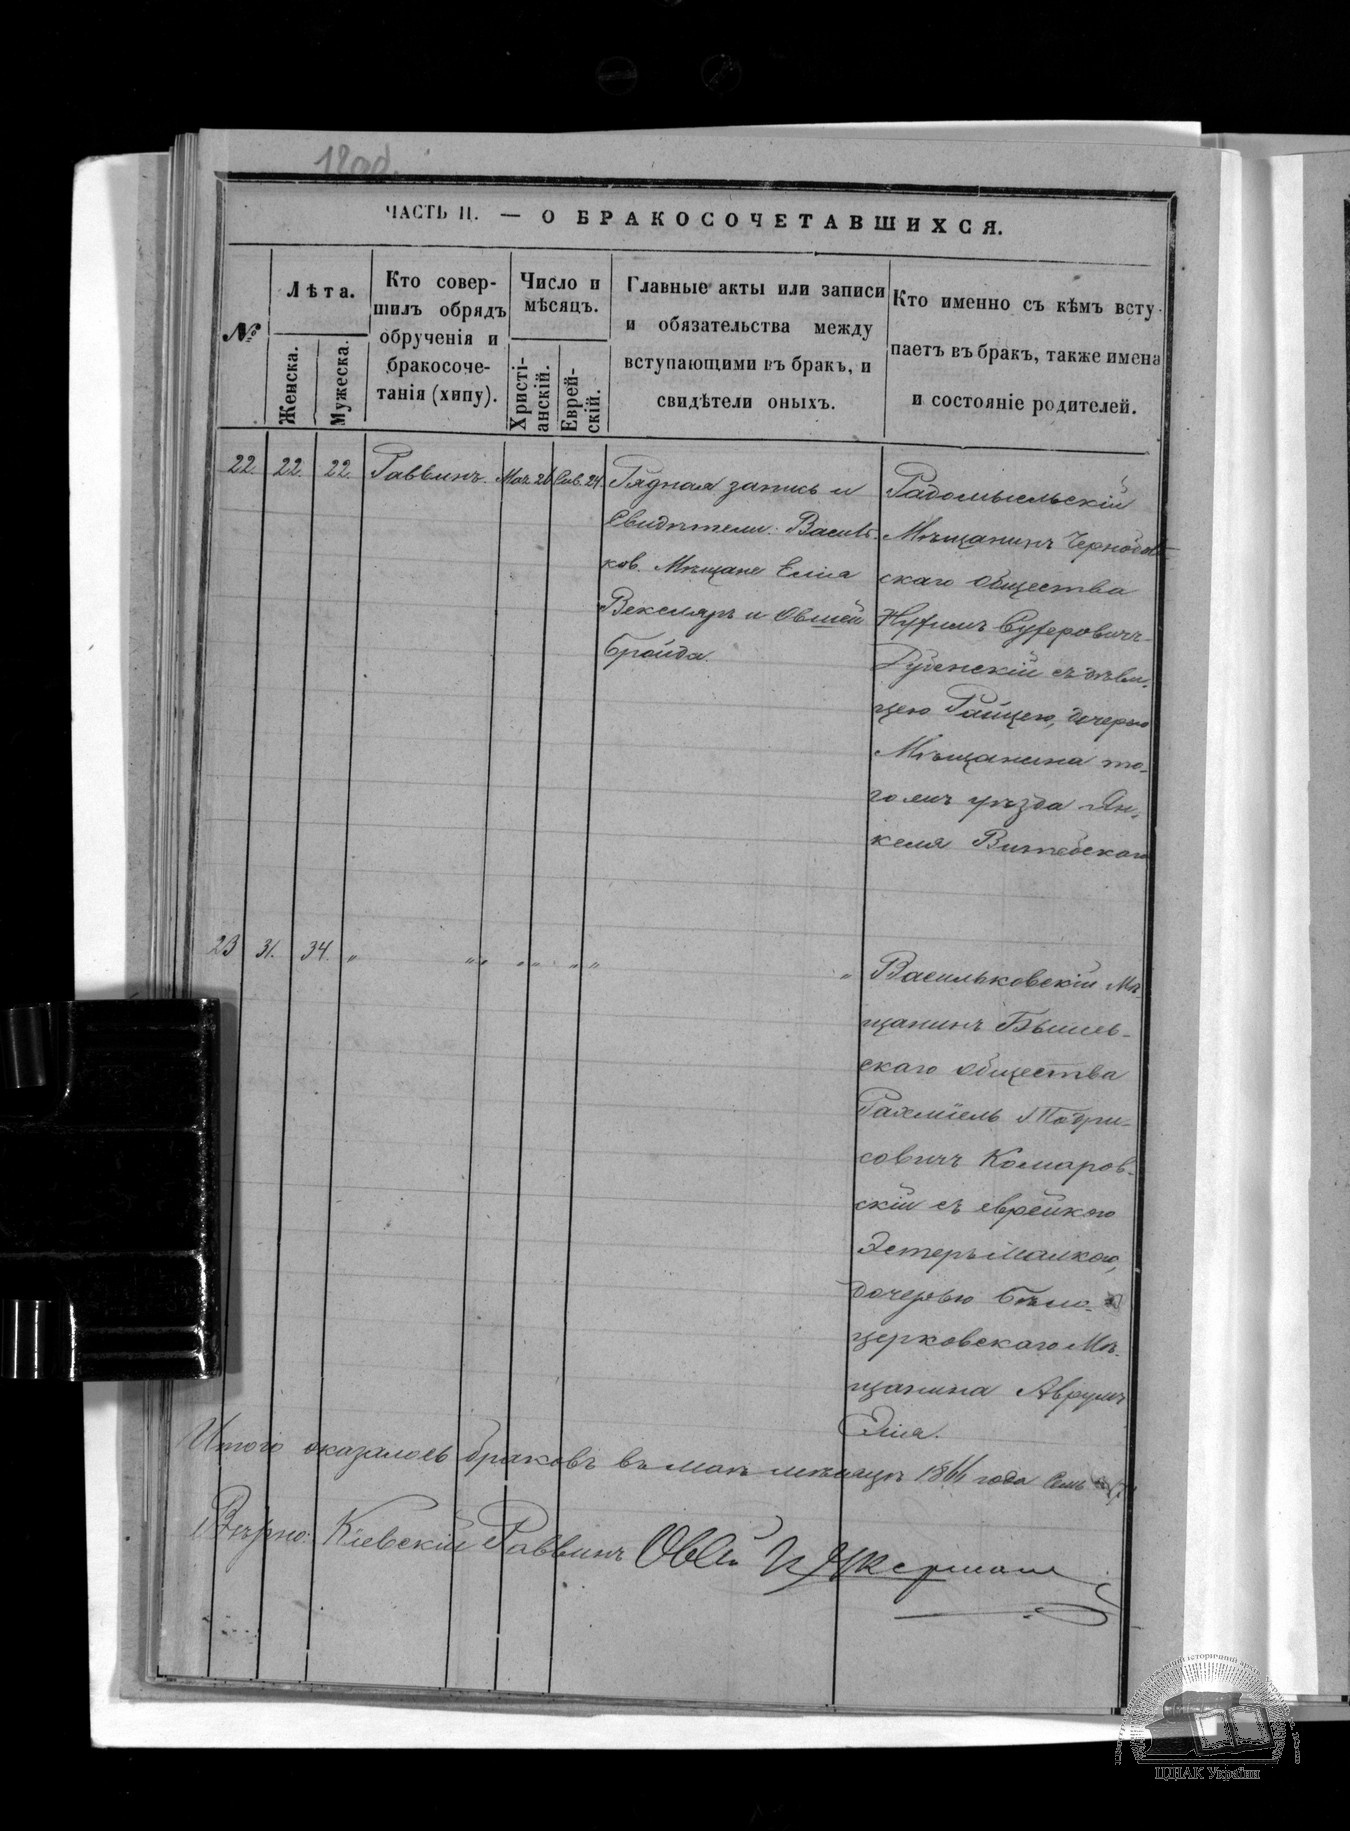 12 об.
ЧАСТЬ II. — О БРАКОСОЧЕТАВШИХСЯ.
№
Лѣта.
Женска.
Мужеска.
Кто совер-
шилъ обрядъ
обрученія и
бракосоче-
танія (хипу).
Число и
мѣсяцъ.
Христі-
анскій.
Еврей-
скій.
Главные акты или записи
и обязательства между
вступающими въ бракъ, и
свидѣтели оныхъ.
Кто именно съ кѣмъ всту-
паетъ въ бракъ, также имена
и состояніе родителей.
22. 22. 22. Раввинъ. Мая 26 Сив. 24.
Рядная запись и
Свидѣтели: Василь-
ков. Мѣщане Еліа
Векслярь и Овшей
Бройда.
Радомысльскій
Мѣщанинъ Чернобыль-
скаго общества
Нухимъ Суферовичъ
съ дѣви-
цею Райцею, дочерью
Мѣщанина то-
го жъ уѣзда Ян-
келя Витебскаго
23 31. 34. „ „ „ „ „ „ „ „
Васильковскій Мѣ-
щанинъ Бышев-
скаго общества
Рахміель
совичъ Комаров-
скій съ еврейкою
Эстеръ Малкою,
дочерью Бѣло-
церковскаго Мѣ-
щанина Аврумъ
Эліа.
Итого оказалось браковъ въ маѣ мѣсяцѣ 1866 года Семь
Вѣрно: Кіевскій Раввинъ Цукерман
ЦДІАК України